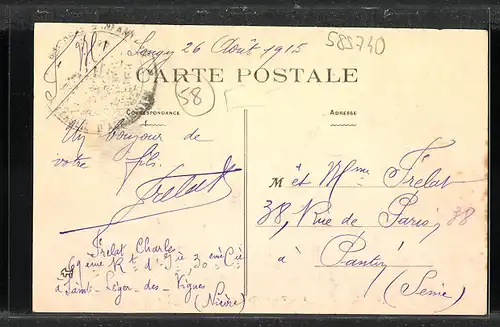 F M
Lougy 26 Août 1915
585740
CARTE POSTALE
58
CORRESPONDANCE
ADRESSE
Un bonjour de
votre fils.
Frelat
M et Mme Frelat
38, Rue de Paris, 38
à Pantin
(Seine)
Frelat Charles
69ème Rt d'Ire, 30ème Cie
à Saint-Léger-des-Vignes
(Nièvre)